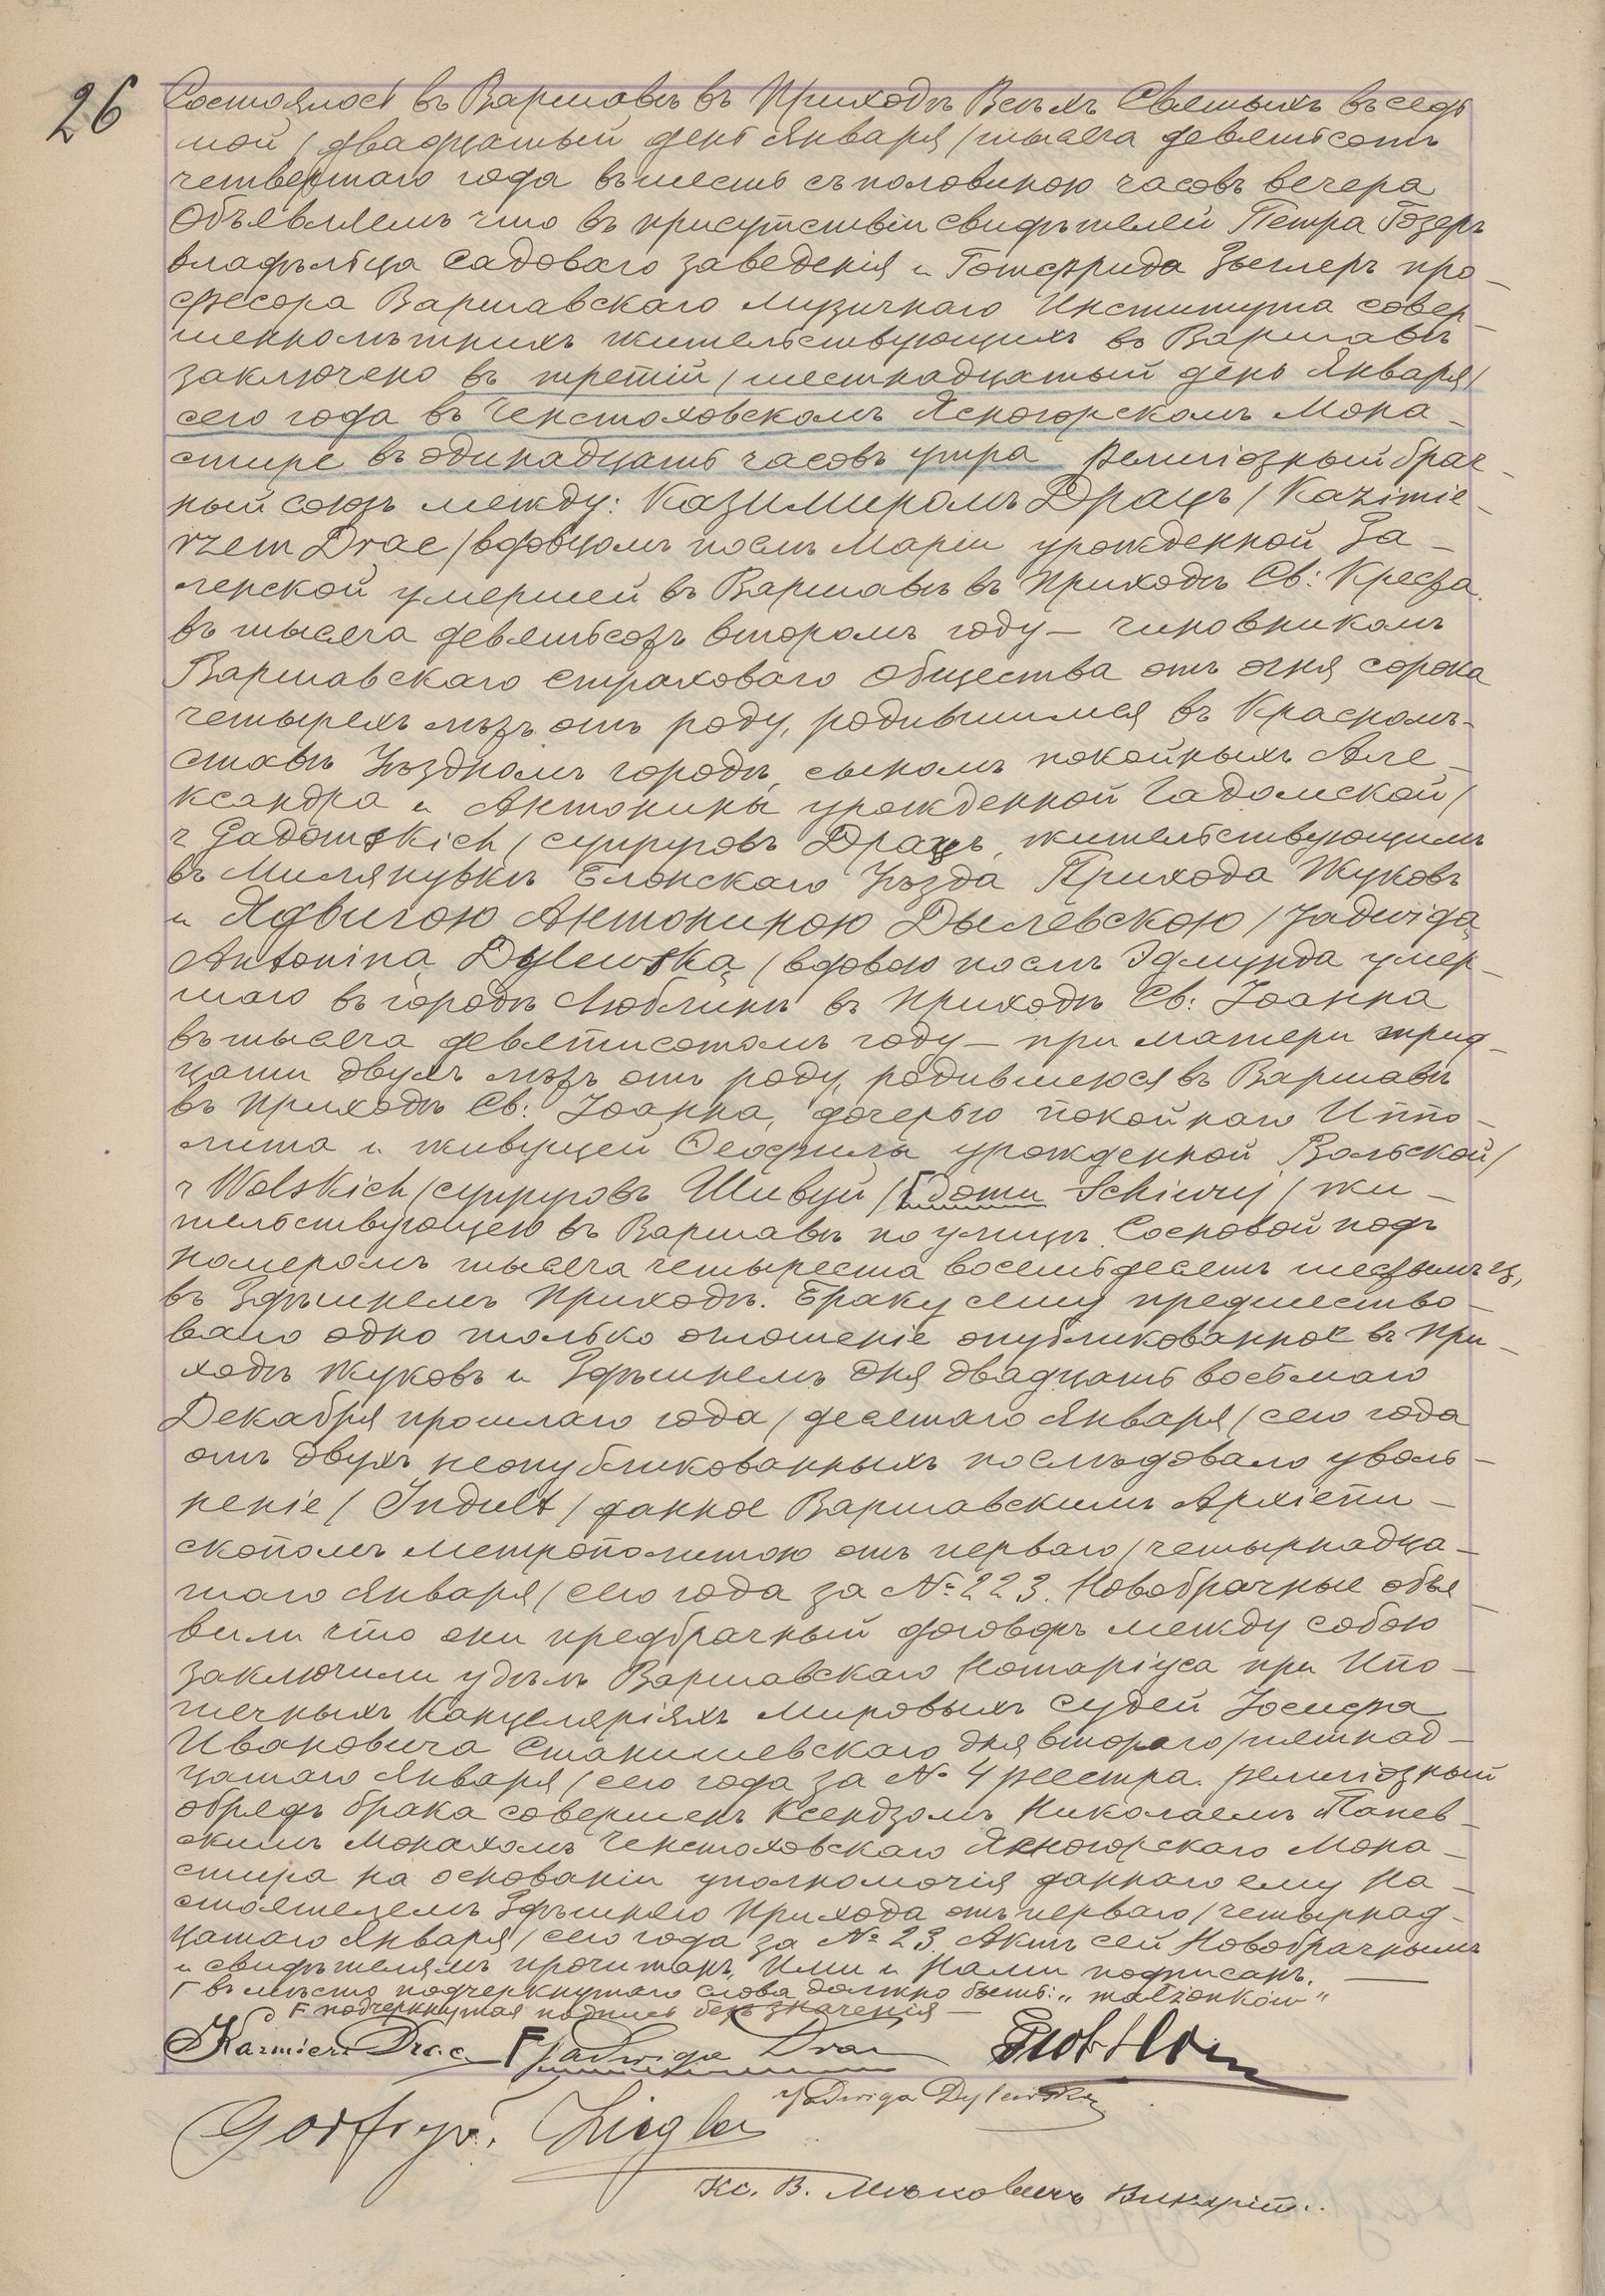 26
Состоялось въ Варшавѣ въ Приходѣ Всѣхъ Святыхъ въ седь
мой /двадцатый день Января/ тысяча девятьсотъ
четвертаго года въ шесть съ половиною часовъ вечера
Объявляемъ что въ присутствіи свидѣтелей Петра Гозеръ
владѣльца садоваго заведенія и Готфрида Зыглеръ про-
фесора Варшавскаго Музичнаго Института совер-
шеннолѣтнихъ жительствующихъ въ Варшавѣ
заключено въ третій /шестнадцатый день Января/
сего года въ Ченстоховскомъ Ясногорскомъ Мона-
стире въ одинадцать часовъ утра религіозный брач-
ный союзъ между: Казимиромъ Драцъ /Kazimie-
rzem Drac/ вдовцомъ послѣ Маріи урожденной За-
ленской умершей въ Варшавѣ въ Приходѣ Св: Креста
въ тысяча девятьсотъ второмъ году — чиновникомъ
Варшавскаго Страховаго Общества отъ огня сорока
четырехъ лѣтъ отъ роду, родившимся въ Красномъ-
ставѣ Уѣздномъ городѣ, сыномъ покойныхъ Але-
ксандра и Антонины урожденной Гадомской/
z Gadomskich/ супруговъ Драцъ, жительствующимъ
въ Милянувкѣ Блонскаго Уѣзда Прихода Жуковъ
и Ядвигою Антониною Дылевскою /Jadwigą
Antoniną Dylewską/ вдовою послѣ Эдмунда умер-
шаго въ городѣ Люблинѣ въ Приходѣ Св: Іоанна
въ тысяча девятисотомъ году — при матери трид-
цати двухъ лѣтъ отъ роду, родившеюся въ Варшавѣ
въ Приходѣ Св: Іоанна, дочерью покойнаго Иппо-
лита и живущей Теофилы урожденной Вольской/
z Wolskich/ супруговъ Шивуй /Г домu Schiwuj/ жи-
тельствующею въ Варшавѣ по улицѣ Сосновой подъ
номеромъ тысяча четыреста восемьдесятъ шестымъ ц,
въ Здѣшнемъ Приходѣ. Браку сему предшество-
вало одно только оглошеніе опубликованное въ При-
ходѣ Жуковъ и Здѣшнемъ дня двадцать восьмаго
Декабря прошлаго года /десятаго Января/ сего года
отъ двухъ неопубликованныхъ послѣдовало уволь-
неніе /Indult/ данное Варшавскимъ Архіепи-
скопомъ Метрополитою отъ перваго /четырнадца-
таго Января/ сего года за № 223. Новобрачные объя-
вили что они предбрачный договоръ между собою
заключили у дѣлъ Варшавскаго Нотаріуса при Ипо-
течныхъ Канцеляріяхъ Мировыхъ Судей Іосифа
Ивановича Станишевскаго дня втораго /пятнад-
цатаго Января/ сего года за № 4 реестра. Религіозный
обрядъ брака совершенъ Ксендзомъ Николаемъ Папев-
скимъ Монахомъ Ченстоховскаго Ясногорскаго Мона-
стира на основаніи уполномочія даннаго ему На-
стоятелемъ Здѣшняго Прихода отъ перваго /четырнад-
цатаго Января/ сего года за № 23. Актъ сей Новобрачнымъ
и свидѣтелямъ прочитанъ, Ими и Нами подписанъ. —
Г вмѣсто подчеркнутаго слова должно быть: „małżonków"
F подчеркнутая подпись безъ значенія —
Kazimierz Drac F Jadwiga Drac
Jadwiga Dylewska
Godfryd Ziegler
Кс. В. Викарій.